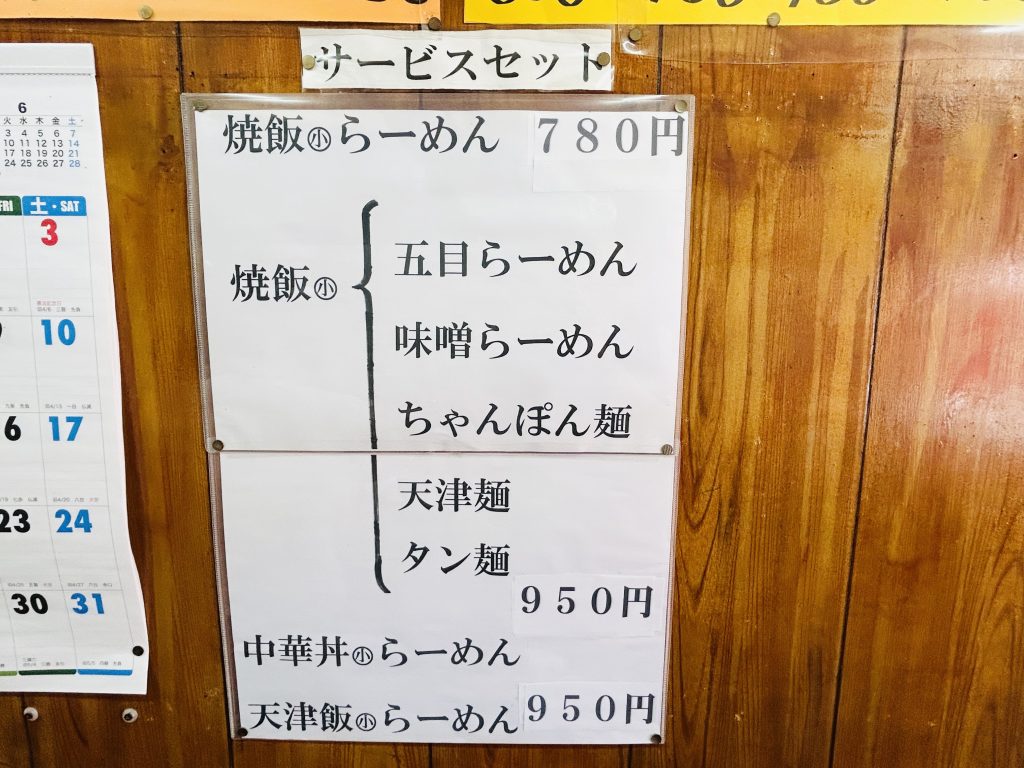 サービスセット
焼飯㊙小らーめん ７８０円
焼飯小
五目らーめん
味噌らーめん
ちゃんぽん麺
天津麺
タン麺
９５０円
中華丼小らーめん
天津飯小らーめん ９５０円
6
火 水 木 金 土
3 4 5 6 7
10 11 12 13 14
17 18 19 20 21
24 25 26 27 28
FRI 土・SAT
3
10
6 17
23 24
30 31